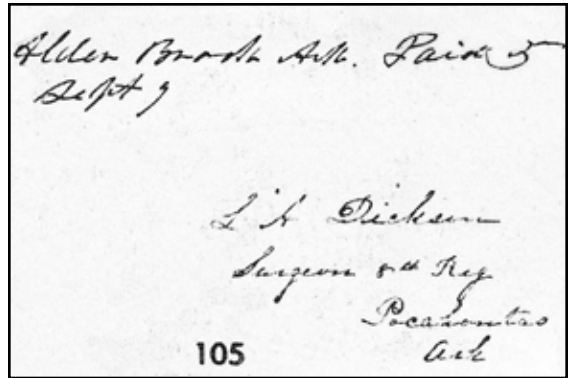 Alder Brook Ark. Paid 5
Sept 9
L A Dickson
Surgeon Reg
Pocahontas
105
Ark